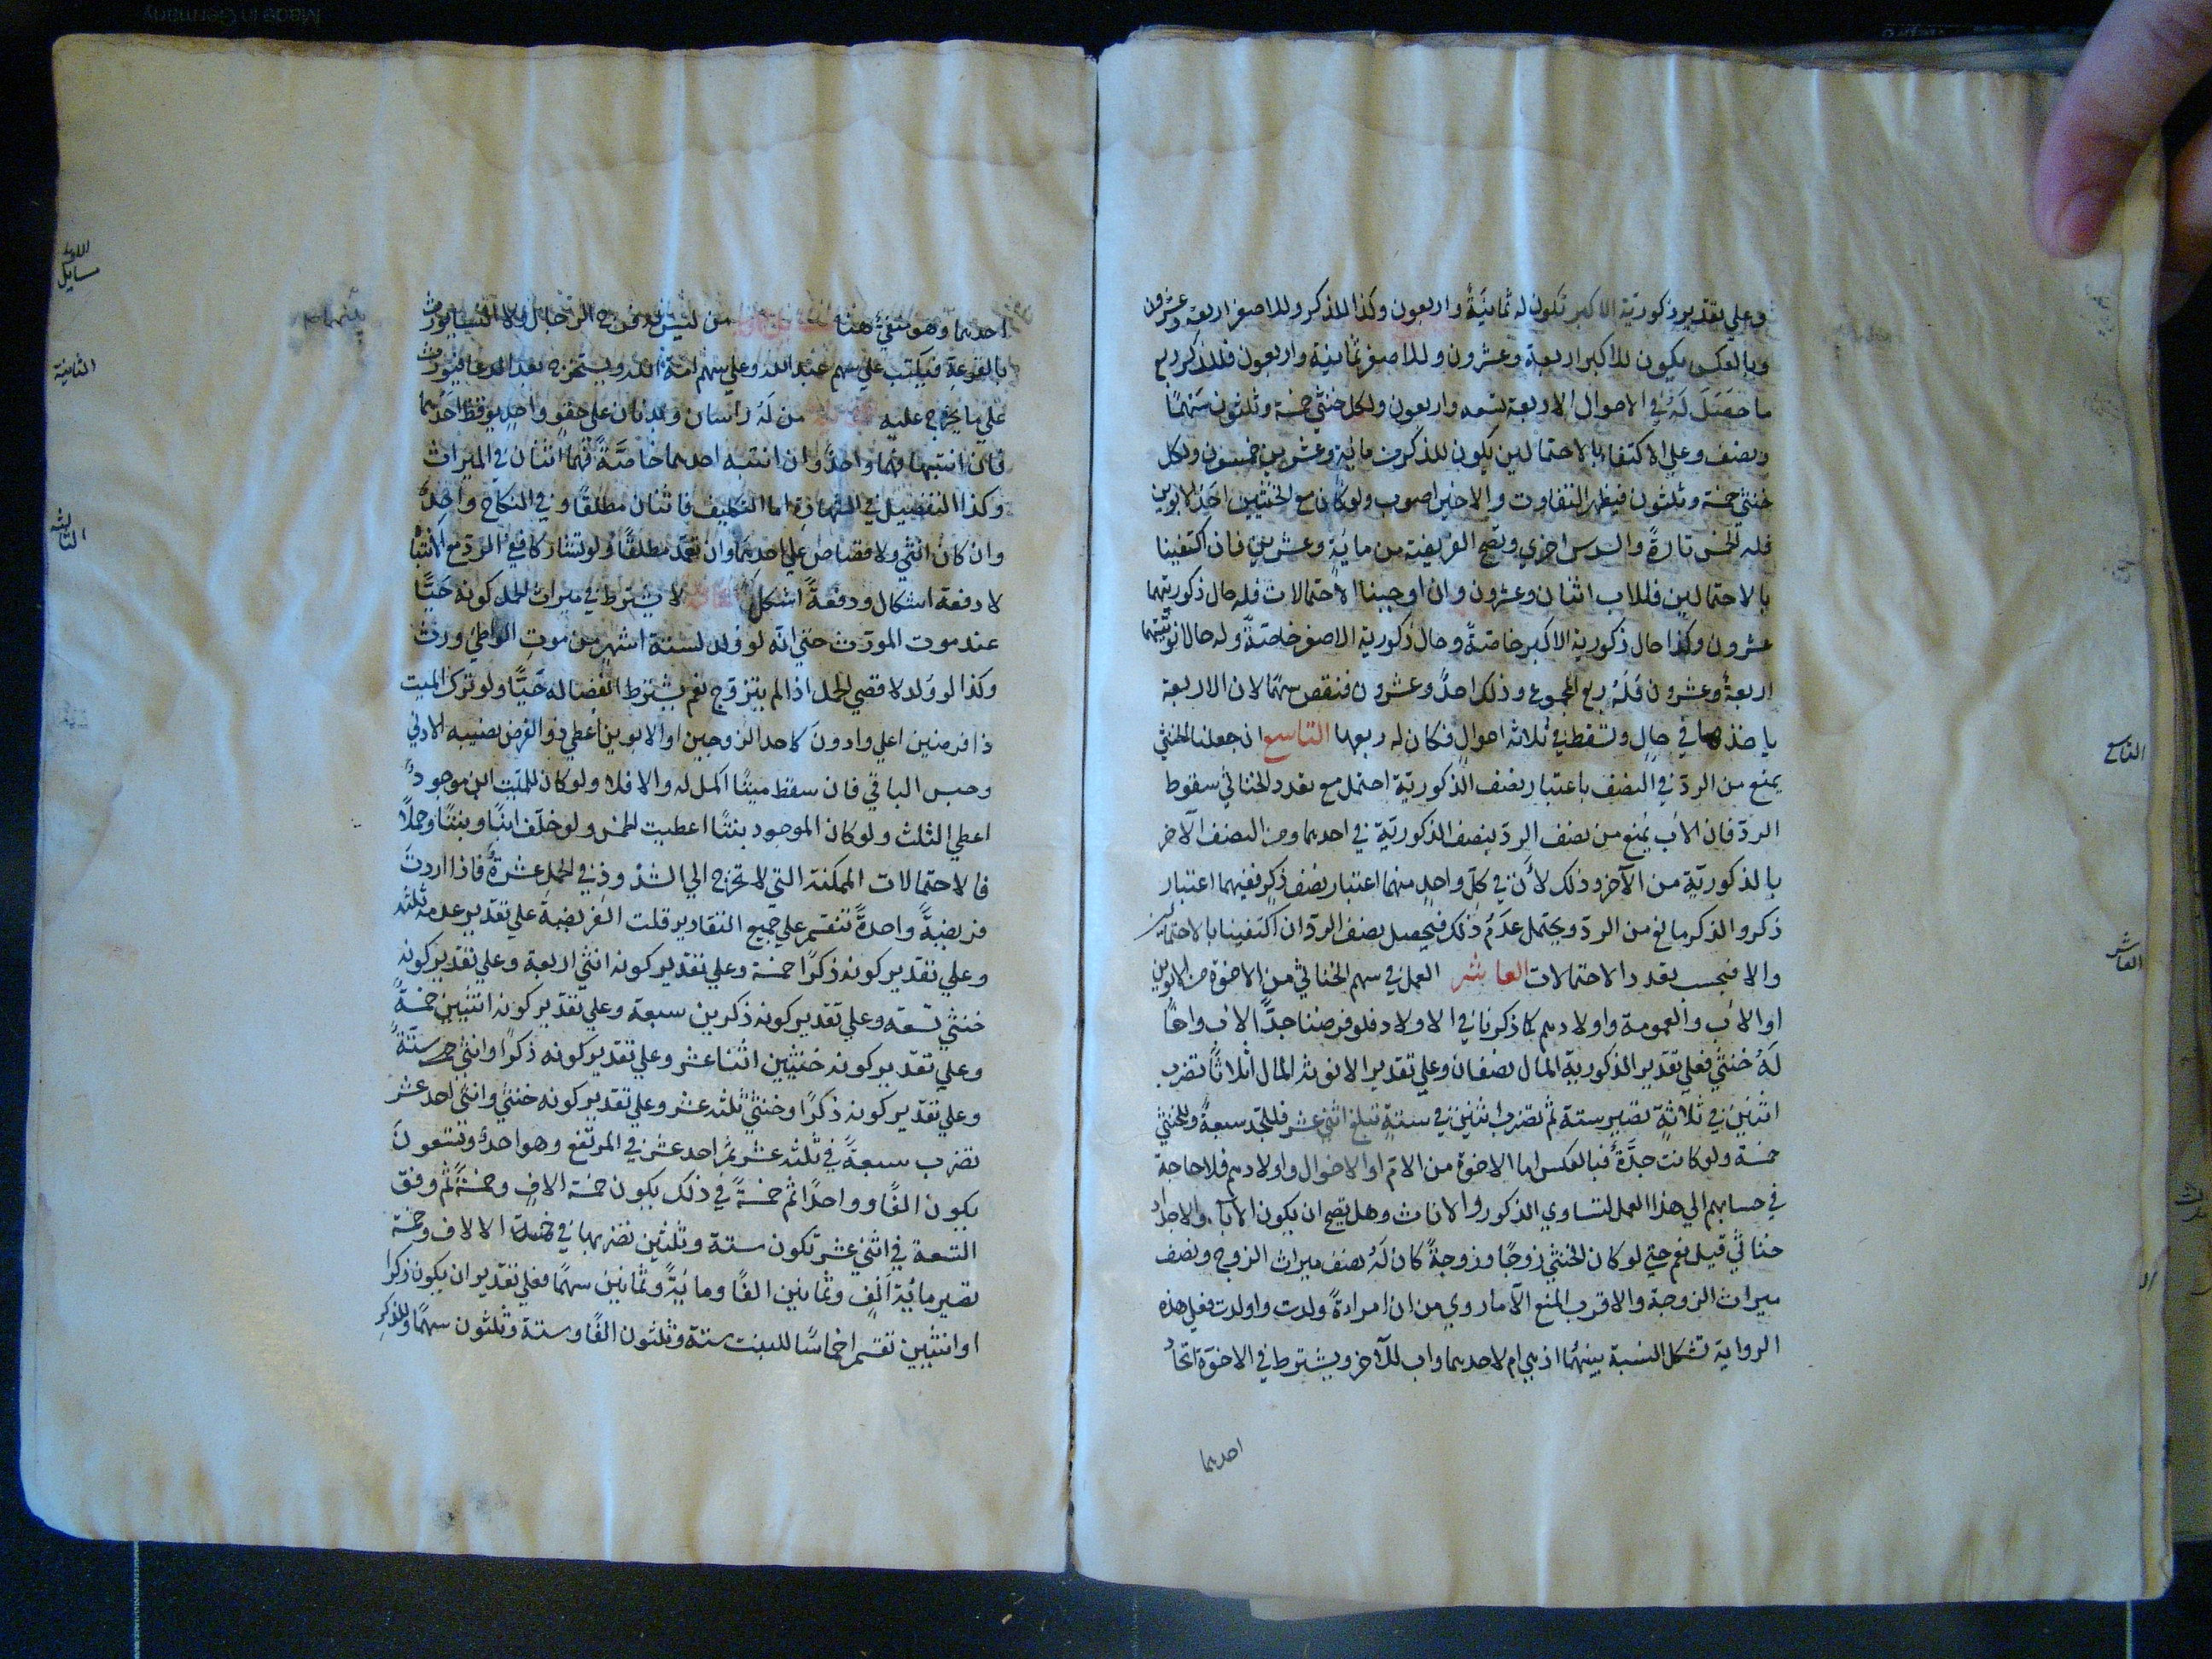 وعلي تقدير ذكورية الاكبر تكون له ثمانية واربعون وكذا للذكر وللاصغر اربعة وعشرون
وبالعكس يكون للاكبر اربعة وعشرون وللاصغر ثمانية واربعون فللذكر ربع
ما حصل له في الاحوال الاربعة تسعه واربعون ولكل خنثي خمسة وثلثون سهمًا
ونصف وعلي الاكتفاء بالاحتمالين يكون للذكر من مائة وعشرين خمسون ولكل
خنثي خمسة وثلثون فيظهر التفاوت والاخير اصوب ولو كان مع الخنثيين احد الابوين
فله الخمس تارةً والسدس اخري وتصح الفريضة من مائة وعشرين فان اكتفينا
بالاحتمالين فللاب اثنان وعشرون وان اوجبنا الاحتمالات فله حال ذكوريتهما
عشرون وكذا حال ذكورية الاكبر خاصةً وحال ذكورية الاصغر خاصةً وله حال انوثيتهما
اربعةٌ وعشرون فله ربع المجموع وذلك احدٌ وعشرون فنقص سهمًا لان الاربعة
ياخذها في حالٍ وتسقط في ثلاثة احوالٍ فكان له ربعها التاسع ان جعلنا الخنثي
يمنع من الرد في النصف باعتبار نصف الذكوريّة احتمل مع تعدد الخناثي سقوط
الردّ فان الاب يُمنع من نصف الردّ بنصف الذكوريّة في احدهما ومن النصف الآخر
بالذكوريّة من الآخر وذلك لأن في كلّ واحدٍ منهما اعتبار نصف ذكرٍ ففيهما اعتبار
ذكر والذكر مانع من الردّ ويحتمل عدمُ ذلك فيحصل نصف الردّ ان اكتفينا بالاحتمالين
والا فبحسب تعدد الاحتمالات العاشر العمل في سهم الخناثي من الاخوة من الابوين
او الاب والعمومة واولادهم كما ذكرنا في الاولاد فلو فرضنا جدًّا لابٍ واخًا
له خنثي فعلي تقدير الذكورية المال نصفان وعلي تقدير الانوثة المال اثلاثًا تضرب
اثنين في ثلاثةٍ تصير ستة ثم تضرب اثنين في ستةٍ تبلغ اثني عشر فللجد سبعةٌ وللخنثي
خمسة ولو كانت جدَّةً فبالعكس اما الاخوة من الام او الاخوال واولادهم فلا حاجة
في حسابهم الي هذا العمل لتساوي الذكور والاناث وهل يصح ان يكون الآباء والاجداد
خناثي قيل نعم حتي لو كان الخنثي زوجًا وزوجةً كان له نصف ميراث الزوج ونصف
ميراث الزوجة والاقرب المنع الا ما روي من ان امراةً ولدت واولدت فعلي هذه
الرواية تشكل النسبة بينهما اذ هي ام لاحدهما واب للآخر ويشترط في الاخوة اتحادُ
احدهما
التاسع
العاشر
احدهما وهو منفيٌ هنا من ليس له فرج الرجال ولا النساء يورث
بالقرعة فيكتب علي سهم عبد الله وعلي سهم امة الله ويستخرج بعد الدعا فيورث
علي ما يخرج عليه من له راسان وبدنان علي حقوٍ واحدٍ يوقظ احدهما
فان انتبها فهما واحدٌ وان انتبه احدهما خاصَّةً فهما اثنان في الميراث
وكذا التفصيل في الشهادة اما التكليف فاثنان مطلقًا وفي النكاح واحدٌ
وان كان انثي ولا قصاص علي احدهما وان تعمد مطلقًا ولو تشاركا ففي الردّ مع الانتباه
لا دفعة اشكال ودفعةً اشكل لا يشترط في ميراث الحمل كونه حيًّا
عند موت المورّث حتي انه لو ولد لستة اشهرٍ من موت الواطي ورث
وكذا لو ولد لاقصي الحمل اذا لم يتزوّج نعم يشترط انفصاله حيًّا ولو ترك الميت
ذا فرضين اعلي وادونَ كاحد الزوجين او الابوين اُعطي ذو الفرض نصيبه الادني
وحبس الباقي فان سقط ميتًا اكمل له والا فلا ولو كان للميّت ابن موجودٌ
اعطي الثلث ولو كان الموجود بنتًا اعطيت الخمس ولو خلّف ابنًا وبنتًا وحملًا
فالاحتمالات الممكنة التي لا تخرج الي الشذوذِ في الحمل عشرةٌ فاذا اردتَ
فريضةً واحدةً تنقسم علي جميع التقادير قلت الفريضة علي تقدير عدمه ثلثة
وعلي تقدير كونه ذكرًا خمسة وعلي تقدير كونه انثي اربعة وعلي تقدير كونه
خنثي تسعه وعلي تقدير كونه ذكرين سبعة وعلي تقدير كونه انثيين خمسةً
وعلي تقدير كونه خنثيين اثنا عشر وعلي تقدير كونه ذكرًا وانثي ستّةً
وعلي تقدير كونه ذكرًا وخنثي ثلثة عشر وعلي تقدير كونه خنثي وانثي احد عشر
تضرب سبعةً في ثلثة عشر ثمّ احد عشر في المرتفع وهو احدٌ وتسعونَ
يكون الفًا وواحدًا ثم خمسةً في ذلك يكون خمسة الافٍ وخمسةً ثم وفق
التسعة في اثني عشر تكون ستة وثلثين تضربها في خمسة الالاف وخمسة
تصير مائة الفٍ وثمانين الفًا ومائةً وثمانين سهمًا فعلي تقدير ان يكون ذكرا
او انثيين تقسم اخماسًا للبنت ستة وثلثون الفًا وستة وثلثون سهمًا وللذكر
مسايل
الثانية
الثالثة